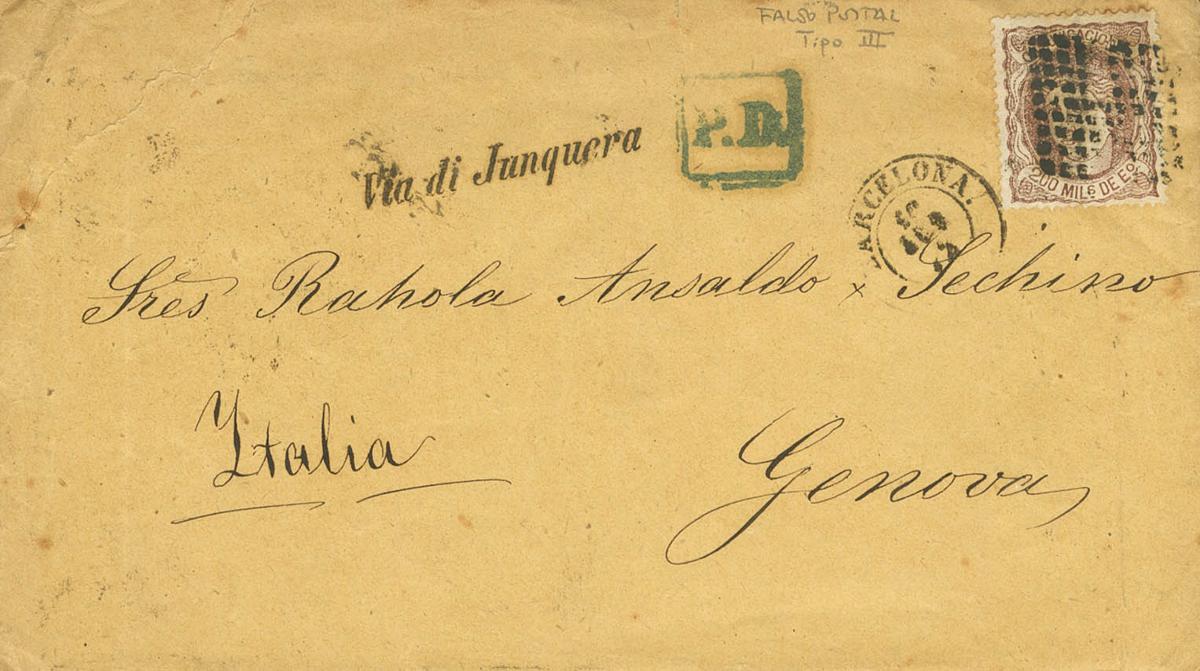 FALSO POSTAL
Tipo III
COMUNICACIONES
200 MILS DE Eo
P.D.
Via di Junquera
BARCELONA.
Sres Rahola Ansaldo x Sechino
Italia
Genova